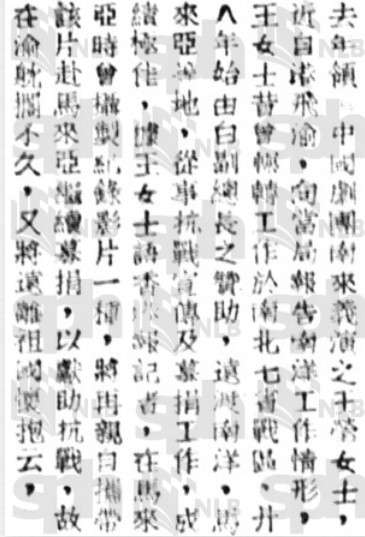 去年領中國劇團南來義演之王瑩女士，
近自港飛渝，向當局報告南洋工作情形，
王女士昔曾輾轉工作於南北七省戰區，廿
八年始由白副總長之贊助，遠涉南洋，馬
來亞各地，從事抗戰宣傳及募捐工作，成
績極佳，據王女士語香港報記者，在馬來
亞時曾攝製紀錄影片一種，將再親自攜帶
該片赴馬來亞繼續募捐，以獻助抗戰，故
在渝耽擱不久，又將遠離祖國懷抱云，